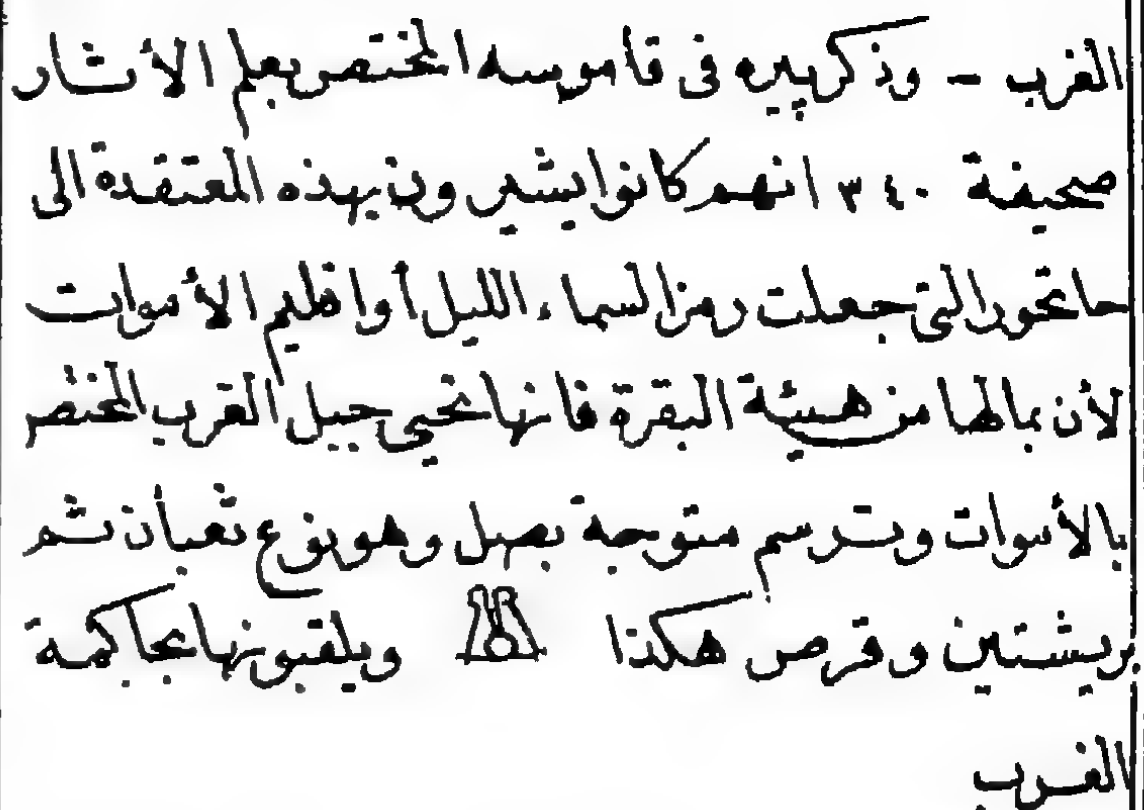 الغرب - وذكر پيره فى قاموسه المختصر بعلم الأثار
صحيفة ٣٤٠ انهم كانوا يشيرون بهذه المعتقدة الى
حاتحور التى جعلت رمزا لسماء الليل أواقليم الأموات
لأن بمالها من هيئة البقرة فانها تحيى جبل الغرب المختص
بالأموات وترسم متوجة بصل وهو نوع ثعبان ثم
بريشتين وقرص هكذا ويلقبونها بحاكمة
الغرب